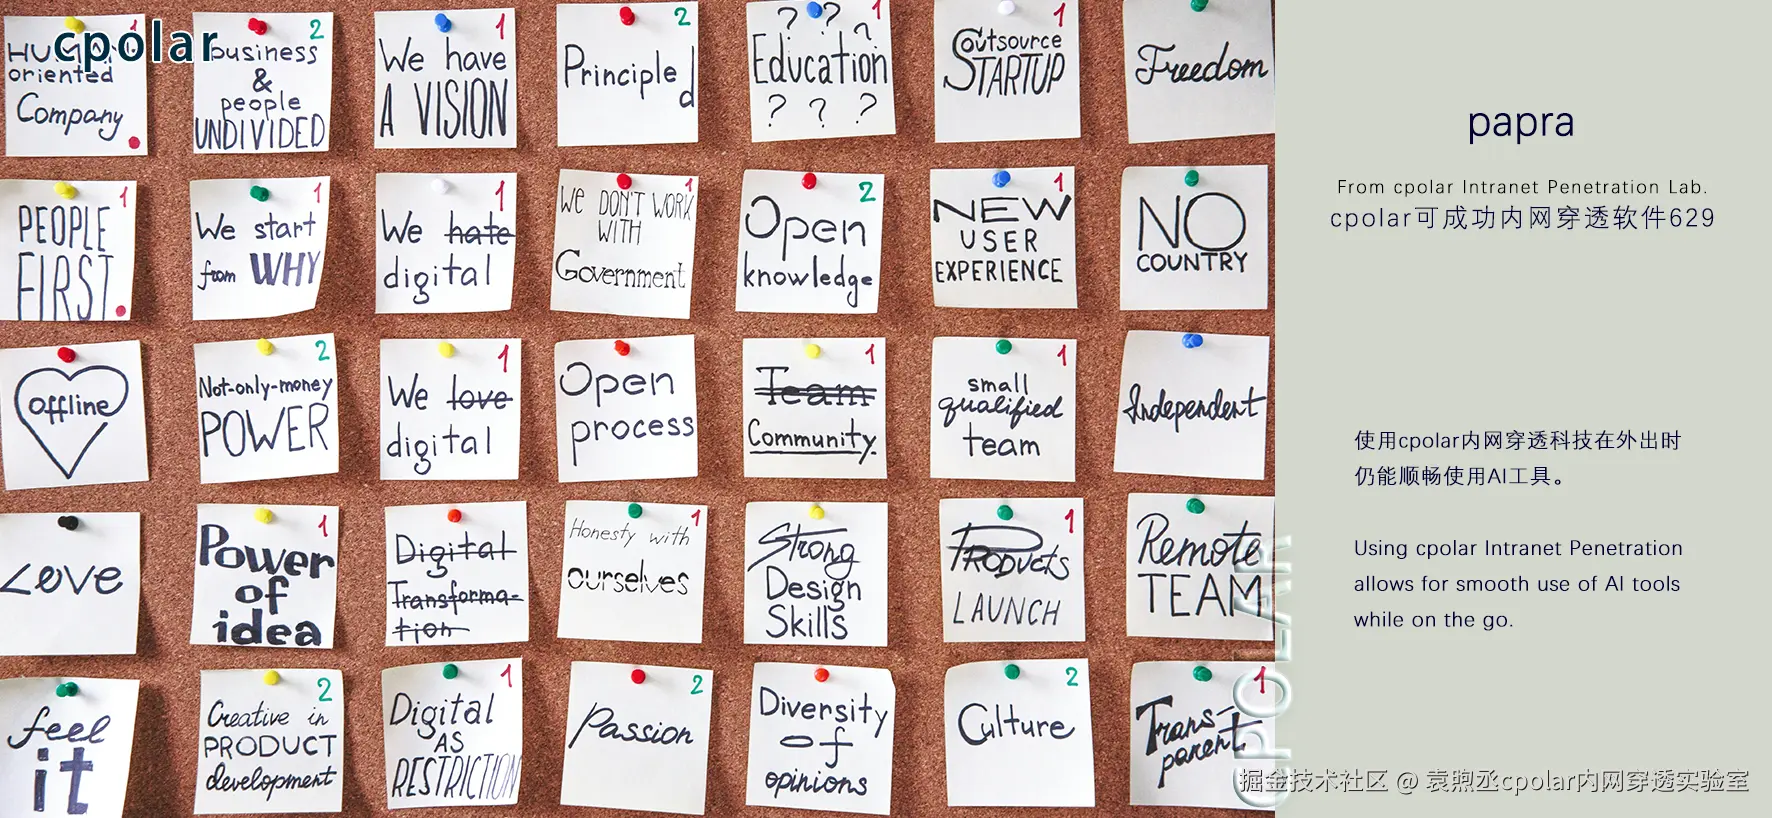 cpolar
HUMAN
oriented
Company
1
business
&
people
UNDIVIDED
2
We have
A VISION
1
Principled
2
? ? ?
Education
? ? ?
1
Outsource
STARTUP
1
Freedom
PEOPLE
FIRST
1
We start
from WHY
1
We hate
digital
1
We DON'T WORK
WITH
Government
1
Open
knowledge
2
NEW
USER
EXPERIENCE
1
NO
COUNTRY
offline
Not-only-money
POWER
2
We love
digital
1
Open
process
Team
Community
1
small
qualified
team
1
Independent
Love
Power
of
idea
1
Digital
Transforma-
tion
Honesty with
ourselves
1
Strong
Design
Skills
PRODUCTS
LAUNCH
1
Remote
TEAM
feel
it
Creative in
PRODUCT
development
2
Digital
AS
RESTRICTION
1
Passion
2
Diversity
of
opinions
Culture
2
Trans-
parent
1
papra
From cpolar Intranet Penetration Lab.
cpolar可成功内网穿透软件629
使用cpolar内网穿透科技在外出时
仍能顺畅使用AI工具。
Using cpolar Intranet Penetration
allows for smooth use of AI tools
while on the go.
CPOLAR
掘金技术社区 @ 袁煦丞cpolar内网穿透实验室